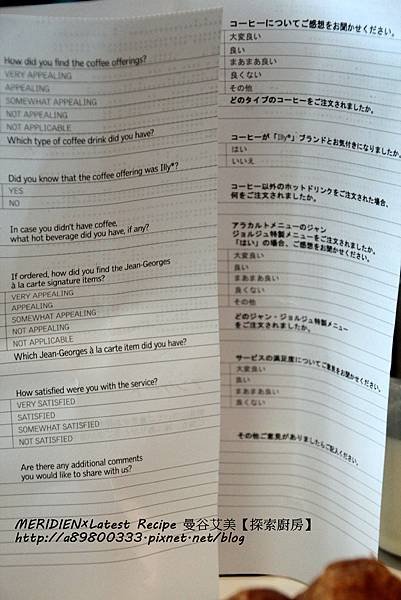 How did you find the coffee offerings?
VERY APPEALING
APPEALING
SOMEWHAT APPEALING
NOT APPEALING
NOT APPLICABLE
Which type of coffee drink did you have?
Did you know that the coffee offering was Illy*?
YES
NO
In case you didn't have coffee,
what hot beverage did you have, if any?
If ordered, how did you find the Jean-Georges
à la carte signature items?
VERY APPEALING
APPEALING
SOMEWHAT APPEALING
NOT APPEALING
NOT APPLICABLE
Which Jean-Georges à la carte item did you have?
How satisfied were you with the service?
VERY SATISFIED
SATISFIED
SOMEWHAT SATISFIED
NOT SATISFIED
Are there any additional comments
you would like to share with us?
コーヒーについてご感想をお聞かせください。
大変良い
良い
まあまあ良い
良くない
その他
どのタイプのコーヒーをご注文されましたか。
コーヒーが「Illy*」ブランドとお気付きになりましたか。
はい
いいえ
コーヒー以外のホットドリンクをご注文された場合、
何をご注文されましたか。
アラカルトメニューのジャン
ジョルジュ特製メニューをご注文されましたか。
「はい」の場合、ご感想をお聞かせください。
大変良い
良い
まあまあ良い
良くない
その他
どのジャン・ジョルジュ特製メニュー
をご注文されましたか。
サービスの満足度についてご意見をお聞かせください。
大変良い
良い
まあまあ良い
良くない
その他ご意見がありましたらご記入ください。
MERIDIEN×Latest Recipe 曼谷艾美【探索廚房】
http://a89800333.pixnet.net/blog